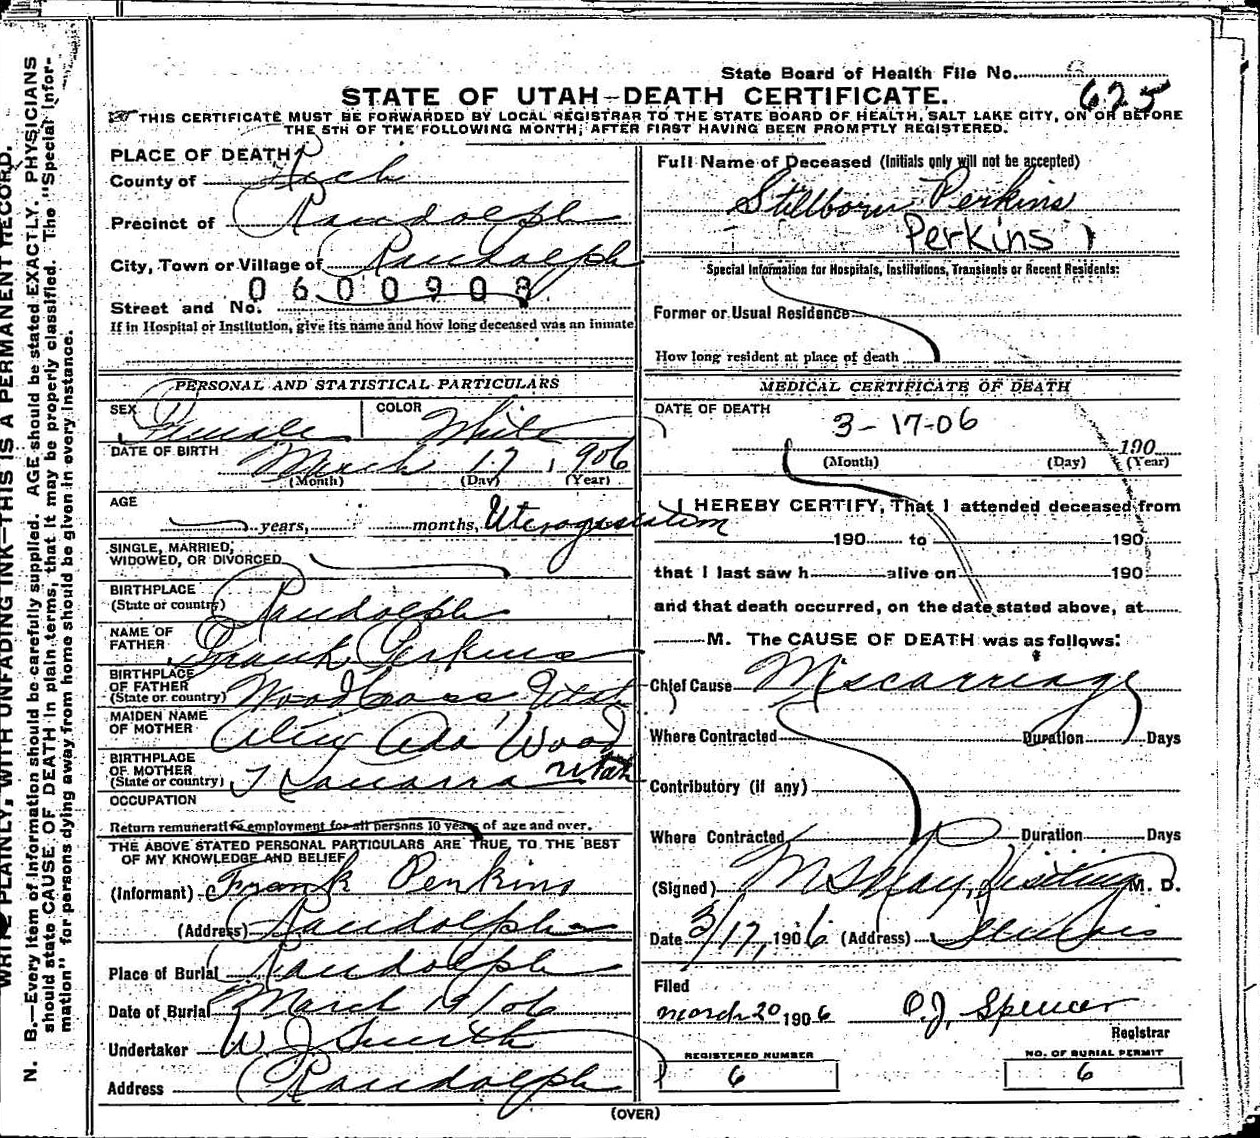 State Board of Health File No. 625
STATE OF UTAH—DEATH CERTIFICATE.
THIS CERTIFICATE MUST BE FORWARDED BY LOCAL REGISTRAR TO THE STATE BOARD OF HEALTH, SALT LAKE CITY, ON OR BEFORE
THE 5TH OF THE FOLLOWING MONTH, AFTER FIRST HAVING BEEN PROMPTLY REGISTERED.
PLACE OF DEATH
County of Rich
Precinct of Randolph
City, Town or Village of Randolph
0600908
Street and No.
If in Hospital or Institution, give its name and how long deceased was an inmate
PERSONAL AND STATISTICAL PARTICULARS
SEX Female COLOR White
DATE OF BIRTH March 17, 1906
(Month) (Day) (Year)
AGE
years, months,
SINGLE, MARRIED,
WIDOWED, OR DIVORCED
BIRTHPLACE
(State or country) Randolph
NAME OF
FATHER Frank Perkins
BIRTHPLACE
OF FATHER
(State or country) Woodcross Utah
MAIDEN NAME
OF MOTHER Ada Wood
BIRTHPLACE
OF MOTHER
(State or country) Kanarra Utah
OCCUPATION
Return remunerative employment for all persons 10 years of age and over.
THE ABOVE STATED PERSONAL PARTICULARS ARE TRUE TO THE BEST
OF MY KNOWLEDGE AND BELIEF
(Informant) Frank Perkins
(Address) Randolph
Place of Burial Randolph
Date of Burial March 19/06
Undertaker W J Smith
Address Randolph
Full Name of Deceased (Initials only will not be accepted)
Stillborn Perkins
Perkins
Special Information for Hospitals, Institutions, Transients or Recent Residents:
Former or Usual Residence
How long resident at place of death
MEDICAL CERTIFICATE OF DEATH
DATE OF DEATH
3-17-06
190
(Month) (Day) (Year)
I HEREBY CERTIFY, That I attended deceased from
190 to 190
that I last saw h alive on 190
and that death occurred, on the date stated above, at
M. The CAUSE OF DEATH was as follows:
Chief Cause Miscarriage
Where Contracted Duration Days
Contributory (if any)
Where Contracted Duration Days
(Signed) Visiting M. D.
Date 3/17, 1906 (Address)
Filed
March 20 1906 O.J. Spencer
Registrar
REGISTERED NUMBER
6
NO. OF BURIAL PERMIT
6
(OVER)
WRITE PLAINLY, WITH UNFADING INK—THIS IS A PERMANENT RECORD.
N. B.—Every item of information should be carefully supplied. AGE should be stated EXACTLY. PHYSICIANS
should state CAUSE OF DEATH in plain terms, that it may be properly classified. The "Special Infor-
mation" for persons dying away from home should be given in every instance.